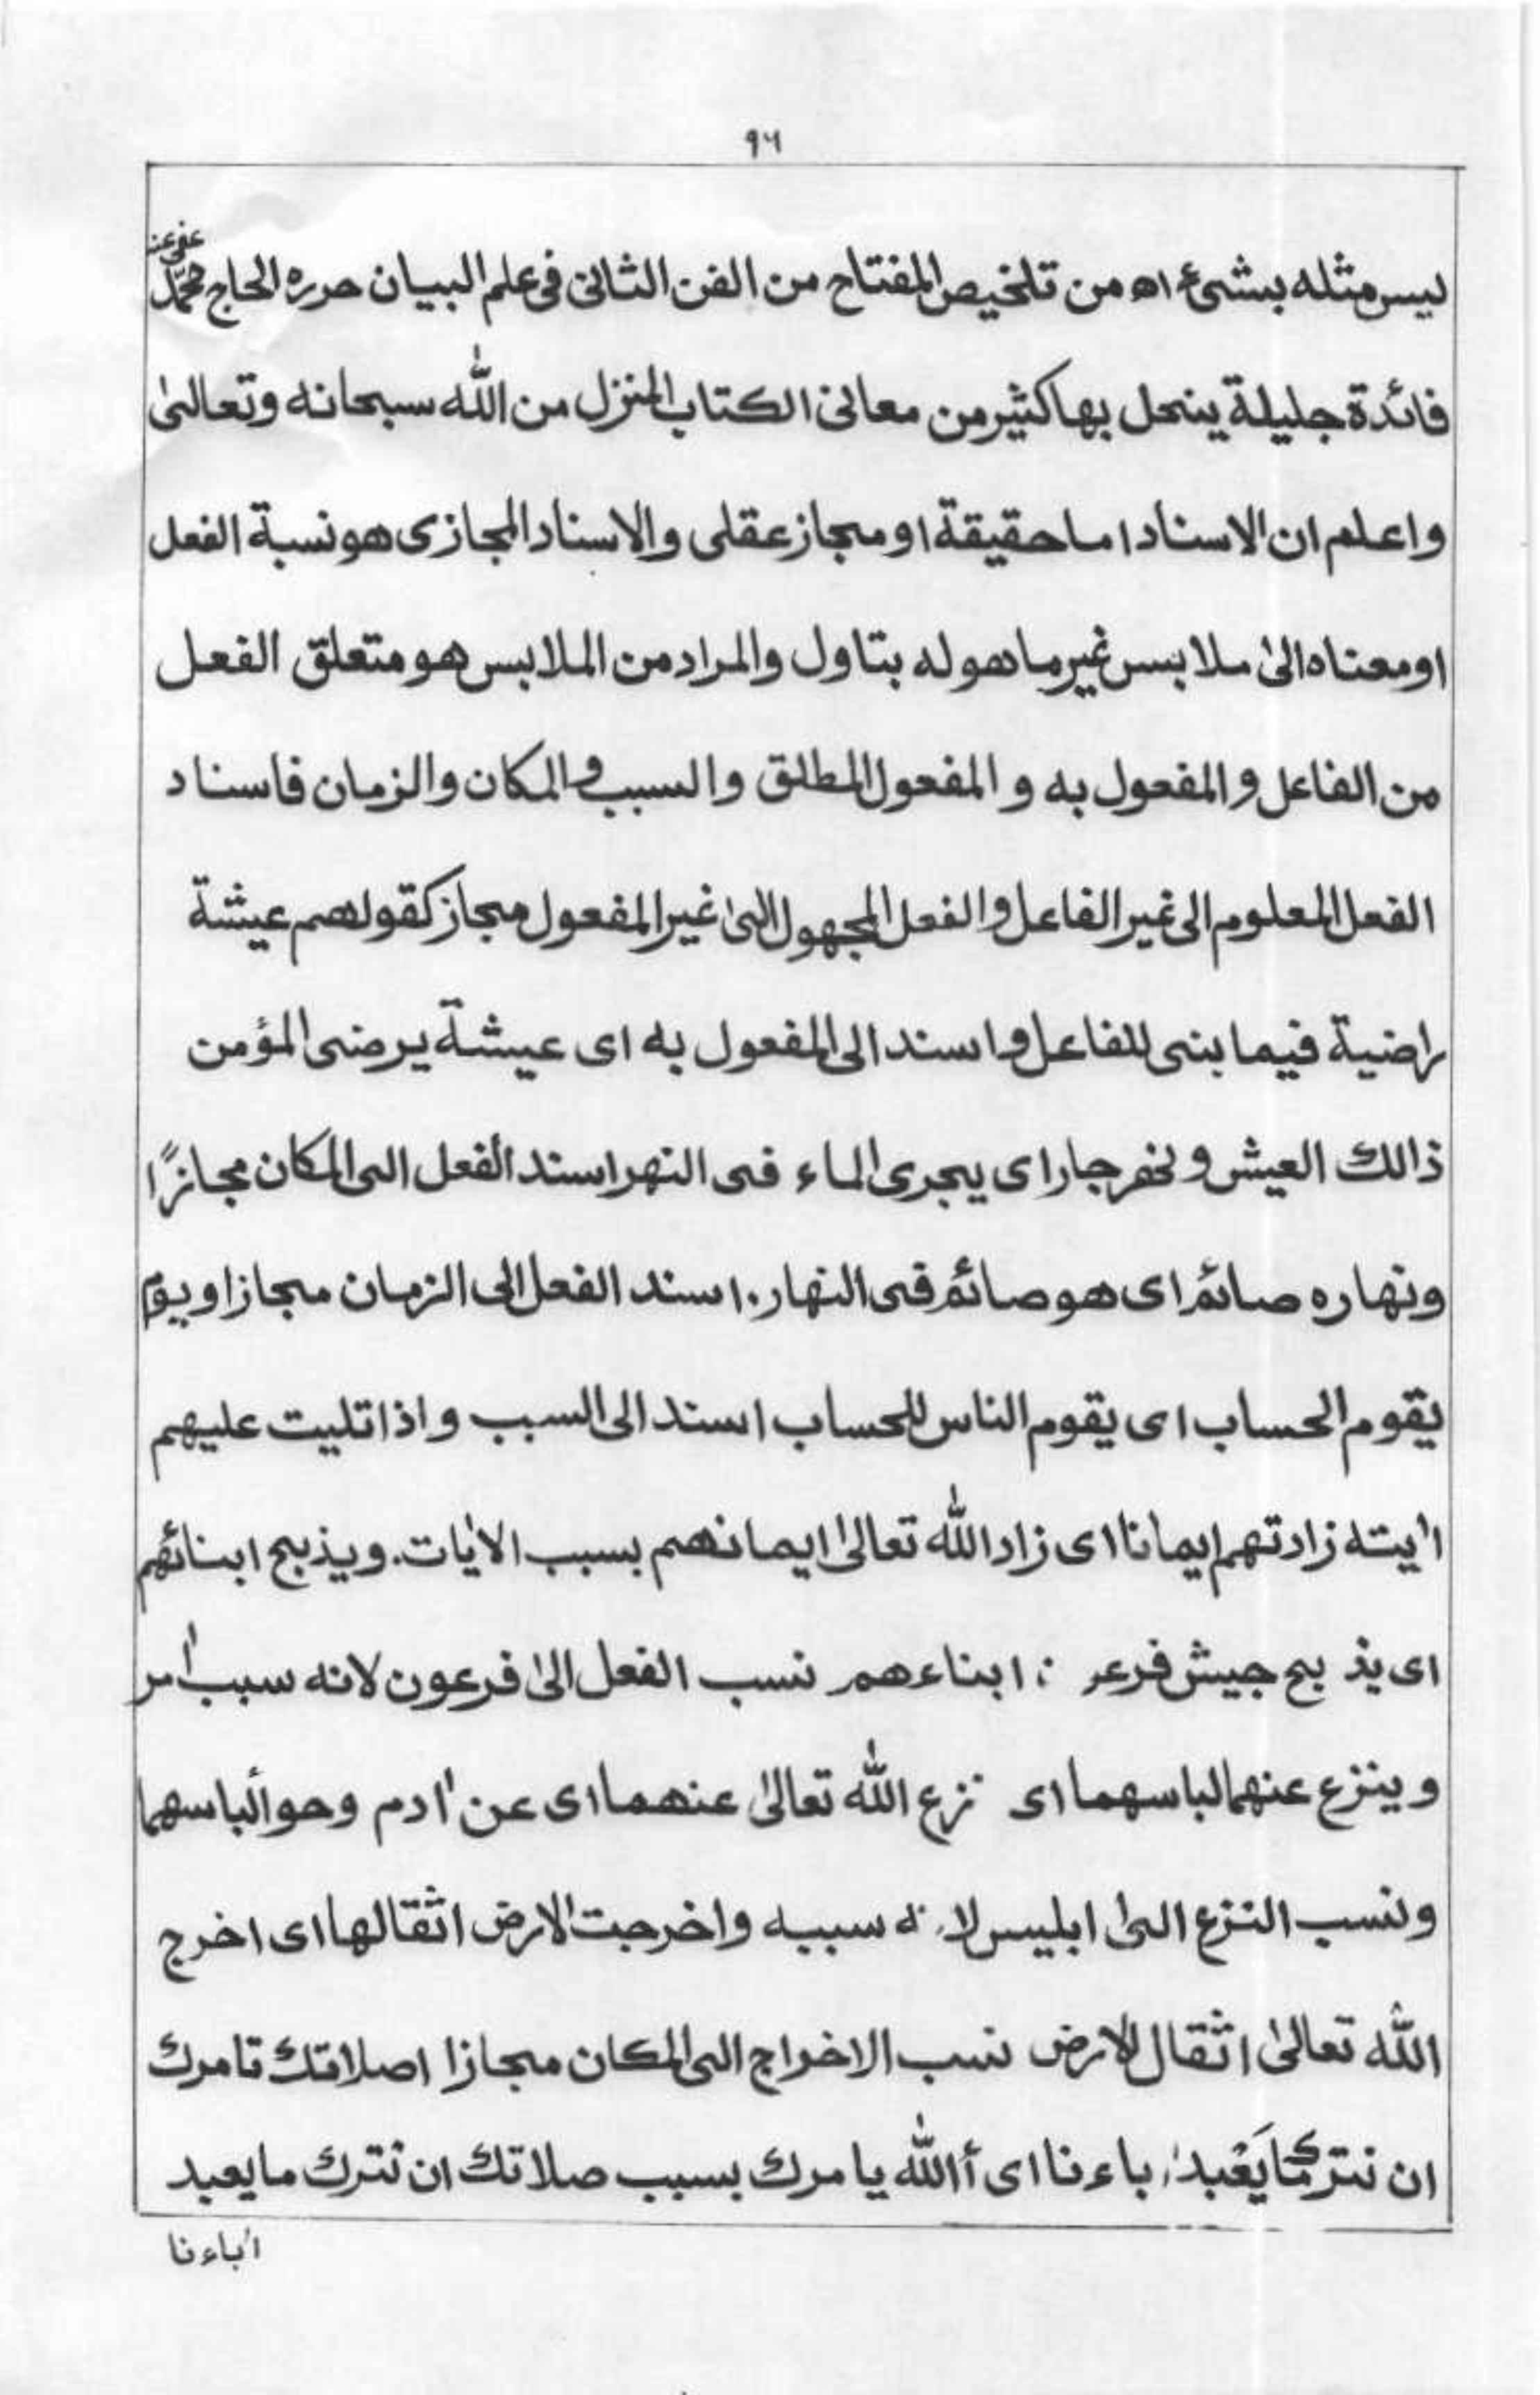 ٩٦
عفى عنه
ليس مثله بشىء اه من تلخيص المفتاح من الفن الثانى فى علم البيان حرره الحاج محمّد
فائدة جليلة ينحل بها كثير من معانى الكتاب المنزل من اللّٰه سبحانه وتعالىٰ
واعلم ان الاسناد اما حقيقة او مجاز عقلى والاسناد المجازى هو نسبة الفعل
او معناه الىٰ ملابس غير ما هو له بتاول والمراد من الملابس هو متعلق الفعل
من الفاعل و المفعول به و المفعول المطلق والسبب والمكان والزمان فاسناد
الفعل المعلوم الى غير الفاعل والفعل المجهول الىٰ غير المفعول مجاز كقولهم عيشة
راضية فيما بنى للفاعل واسند الى المفعول به اى عيشة يرضى المؤمن
ذالك العيش و نهر جار اى يجرى الماء فى النهر اسند الفعل الى المكان مجازًا
ونهاره صائم اى هو صائم فى النهار. اسند الفعل الى الزمان مجازا ويوم
يقوم الحساب اى يقوم الناس للحساب اسند الى السبب واذا تليت عليهم
اٰيته زادتهم ايمانا اى زاد اللّٰه تعالىٰ ايمانهم بسبب الاٰيات. ويذبح ابنائهم
اى يذبح جيش فرعو ن ابناءهم نسب الفعل الىٰ فرعون لانه سبب اٰمر
وينزع عنهما لباسهما اى نزع اللّٰه تعالىٰ عنهما اى عن اٰدم وحوألباسهما
ونسب النزع الىٰ ابليس لانه سببه واخرجت الارض اثقالها اى اخرج
اللّٰه تعالىٰ اثقال الارض نسب الاخراج الى المكان مجازا اصلاتك تامرك
ان نترك مَا يَعْبد اٰباءنا اى أاللّٰه يامرك بسبب صلاتك ان نترك ما يعبد
اٰباءنا